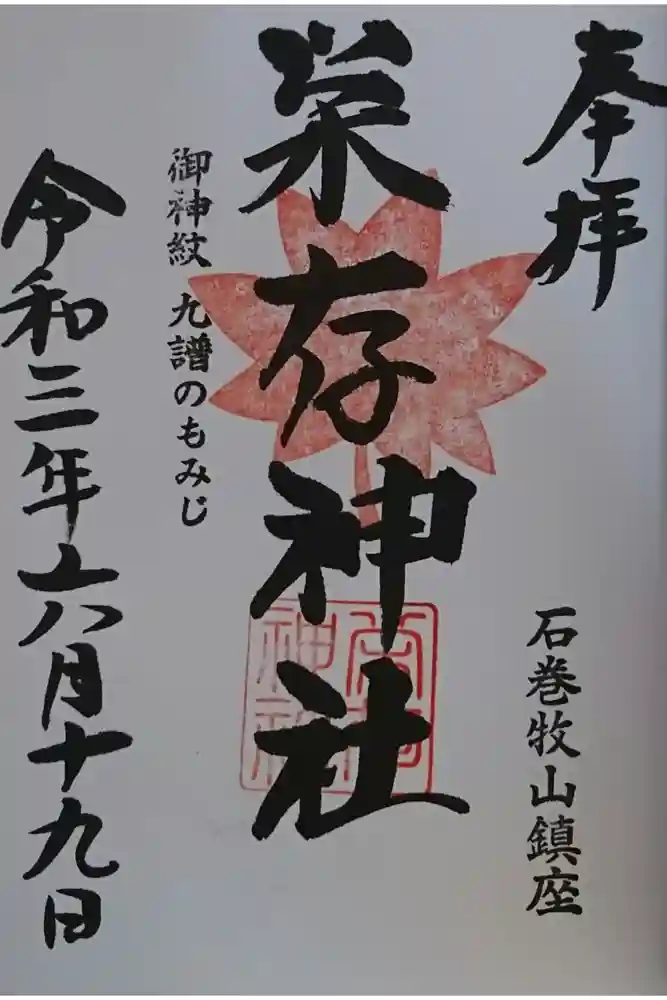 奉拝
石巻牧山鎮座
栄存神社
御神紋 九譜のもみじ
令和三年六月十九日